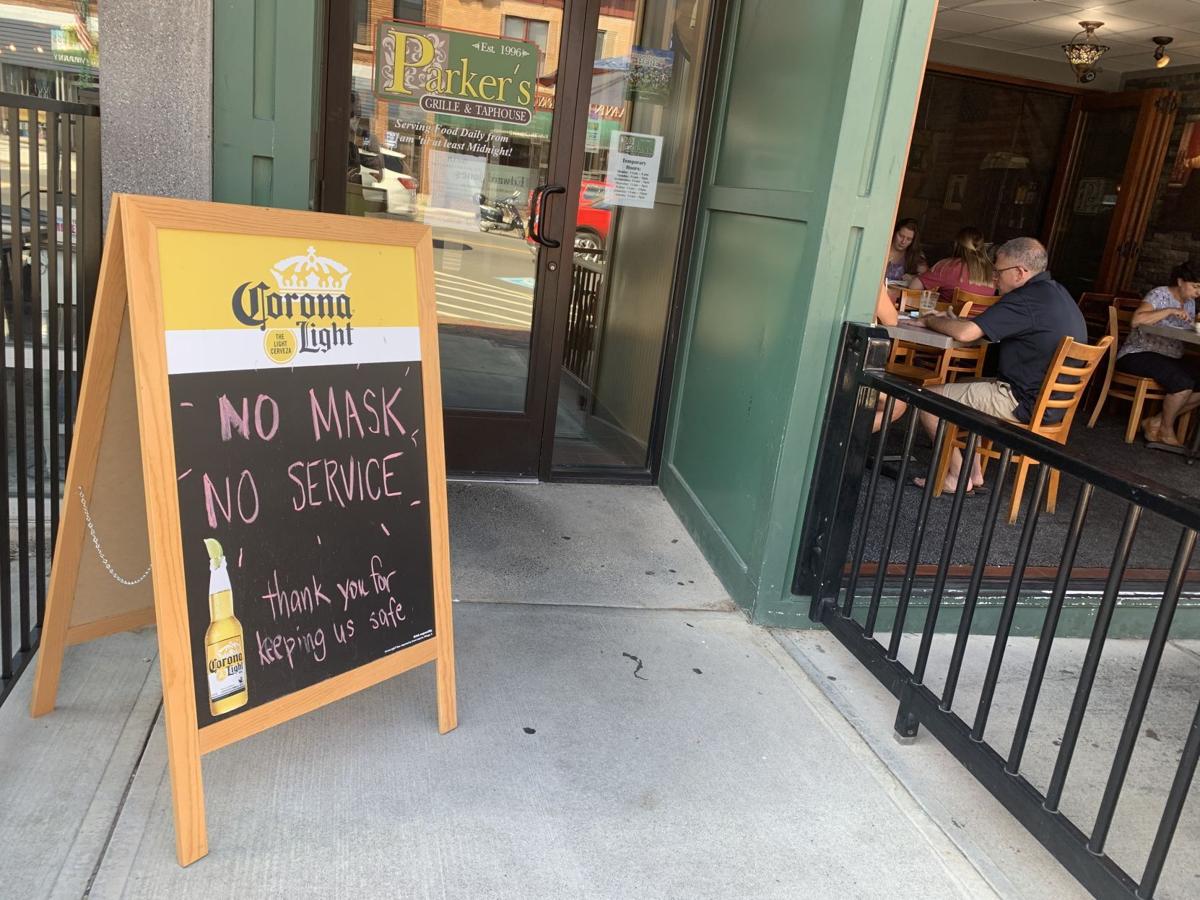 Est. 1996
Parker's
GRILLE & TAPHOUSE
Serving Food Daily from
11am 'til at least Midnight!
Temporary
Hours:
Corona
Light
THE
LIGHT
CERVEZA
NO MASK
NO SERVICE
thank you for
keeping us safe
Corona
Light